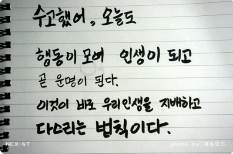 수고했어, 오늘도
행동이 모여 인생이 되고
곧 운명이 된다.
이것이 바로 우리인생을 지배하고
다스리는 법칙이다.